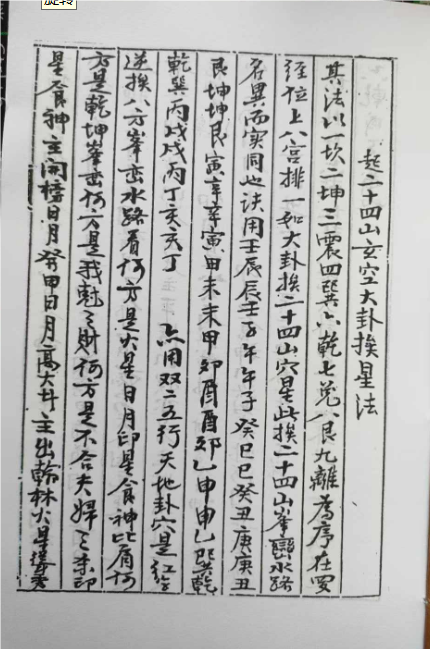 旋转
起二十四山玄空大卦挨星法
其法以一坎二坤三震四巽六乾七兑八艮九離為序在四
經位上八宫排一如大卦挨二十四山穴星此挨二十四山峯巒水路
名異而实同也诀用壬辰辰壬子午午子癸巳巳癸丑庚庚丑
艮坤坤艮寅辛辛寅甲未未甲卯酉酉卯乙申申乙巽乾
乾巽丙戌戌丙丁亥亥丁 亦用双二五行天地卦穴是江
逆挨八方峯巒水路看何方是火星日月印星食神比肩何
方是乾坤峯巒何方是我尅之財何方是不合夫婦之
星食神主開榜日月癸甲日月高大斗主出翰林火星